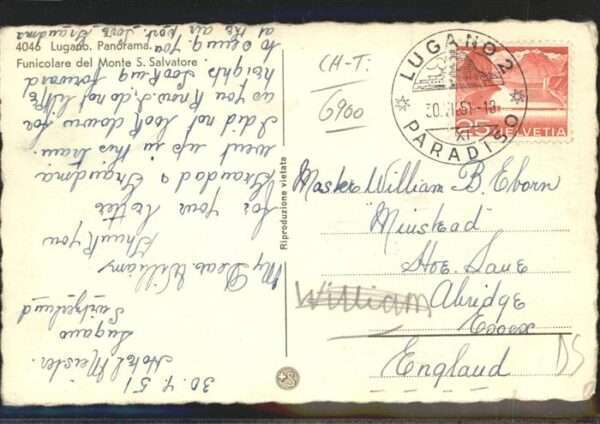 4046 Lugano. Panorama.
Funicolare del Monte S. Salvatore
30.7.51
Hotel Meister.
Lugano
Switzerland
My Dear William,
Thank you
for your letter
Grandad & Grandma
went up in this train.
I did not look down for
as you know I do not like
heights Looking forward
to seeing you
at the air port. Love Grandma
Riproduzione vietata
CH-T:
6900
LUGANO 2
PARADISO
25
HELVETIA
Master William B. Eborn
"Minstead"
Hoe. Lane
William Abridge
Essex
England
DS